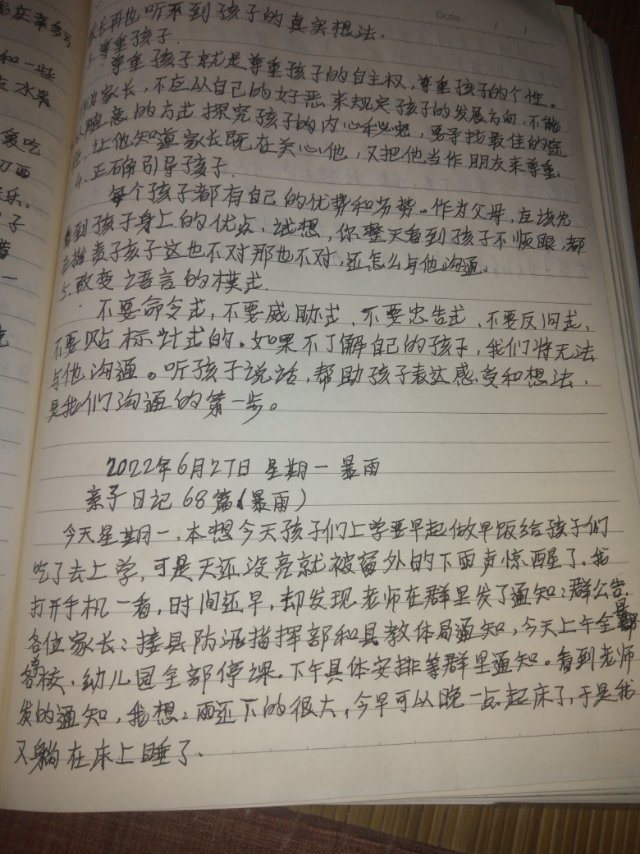 家长再也听不到孩子的真实想法.
3.尊重孩子.
尊重孩子就是尊重孩子的自主权,尊重孩子的个性。
作为家长,不应从自己的好恶来规定孩子的发展方向,不能
以随意的方式探究孩子的内心秘密,要寻找最佳的途
径,让他知道家长既在关心他,又把他当作朋友来尊重.
4.正确引导孩子.
每个孩子都有自己的优势和劣势。作为父母,应该先
看到孩子身上的优点,试想,你整天看到孩子不顺眼,都
在指责孩子这也不对那也不对,还怎么与他沟通。
5.改变语言的模式.
不要命令式,不要威胁式,不要忠告式,不要反问式,
不要贴标签式的。如果不了解自己的孩子,我们将无法
与他沟通。听孩子说话,帮助孩子表达感受和想法,
是我们沟通的第一步。
2022年6月27日 星期一 暴雨
亲子日记68篇(暴雨)
今天星期一,本想今天孩子们上学要早起做早饭给孩子们
吃了去上学,可是天还没亮就被窗外的下雨声惊醒了.我
打开手机一看,时间还早,却发现老师在群里发了通知:群公告.
各位家长:接县防汛指挥部和县教体局通知,今天上午全县
各校、幼儿园全部停课。下午具体安排等群里通知。看到老师
发的通知,我想:雨还下的很大,今早可以晚一点起床了,于是我
又躺在床上睡了.
Date / /